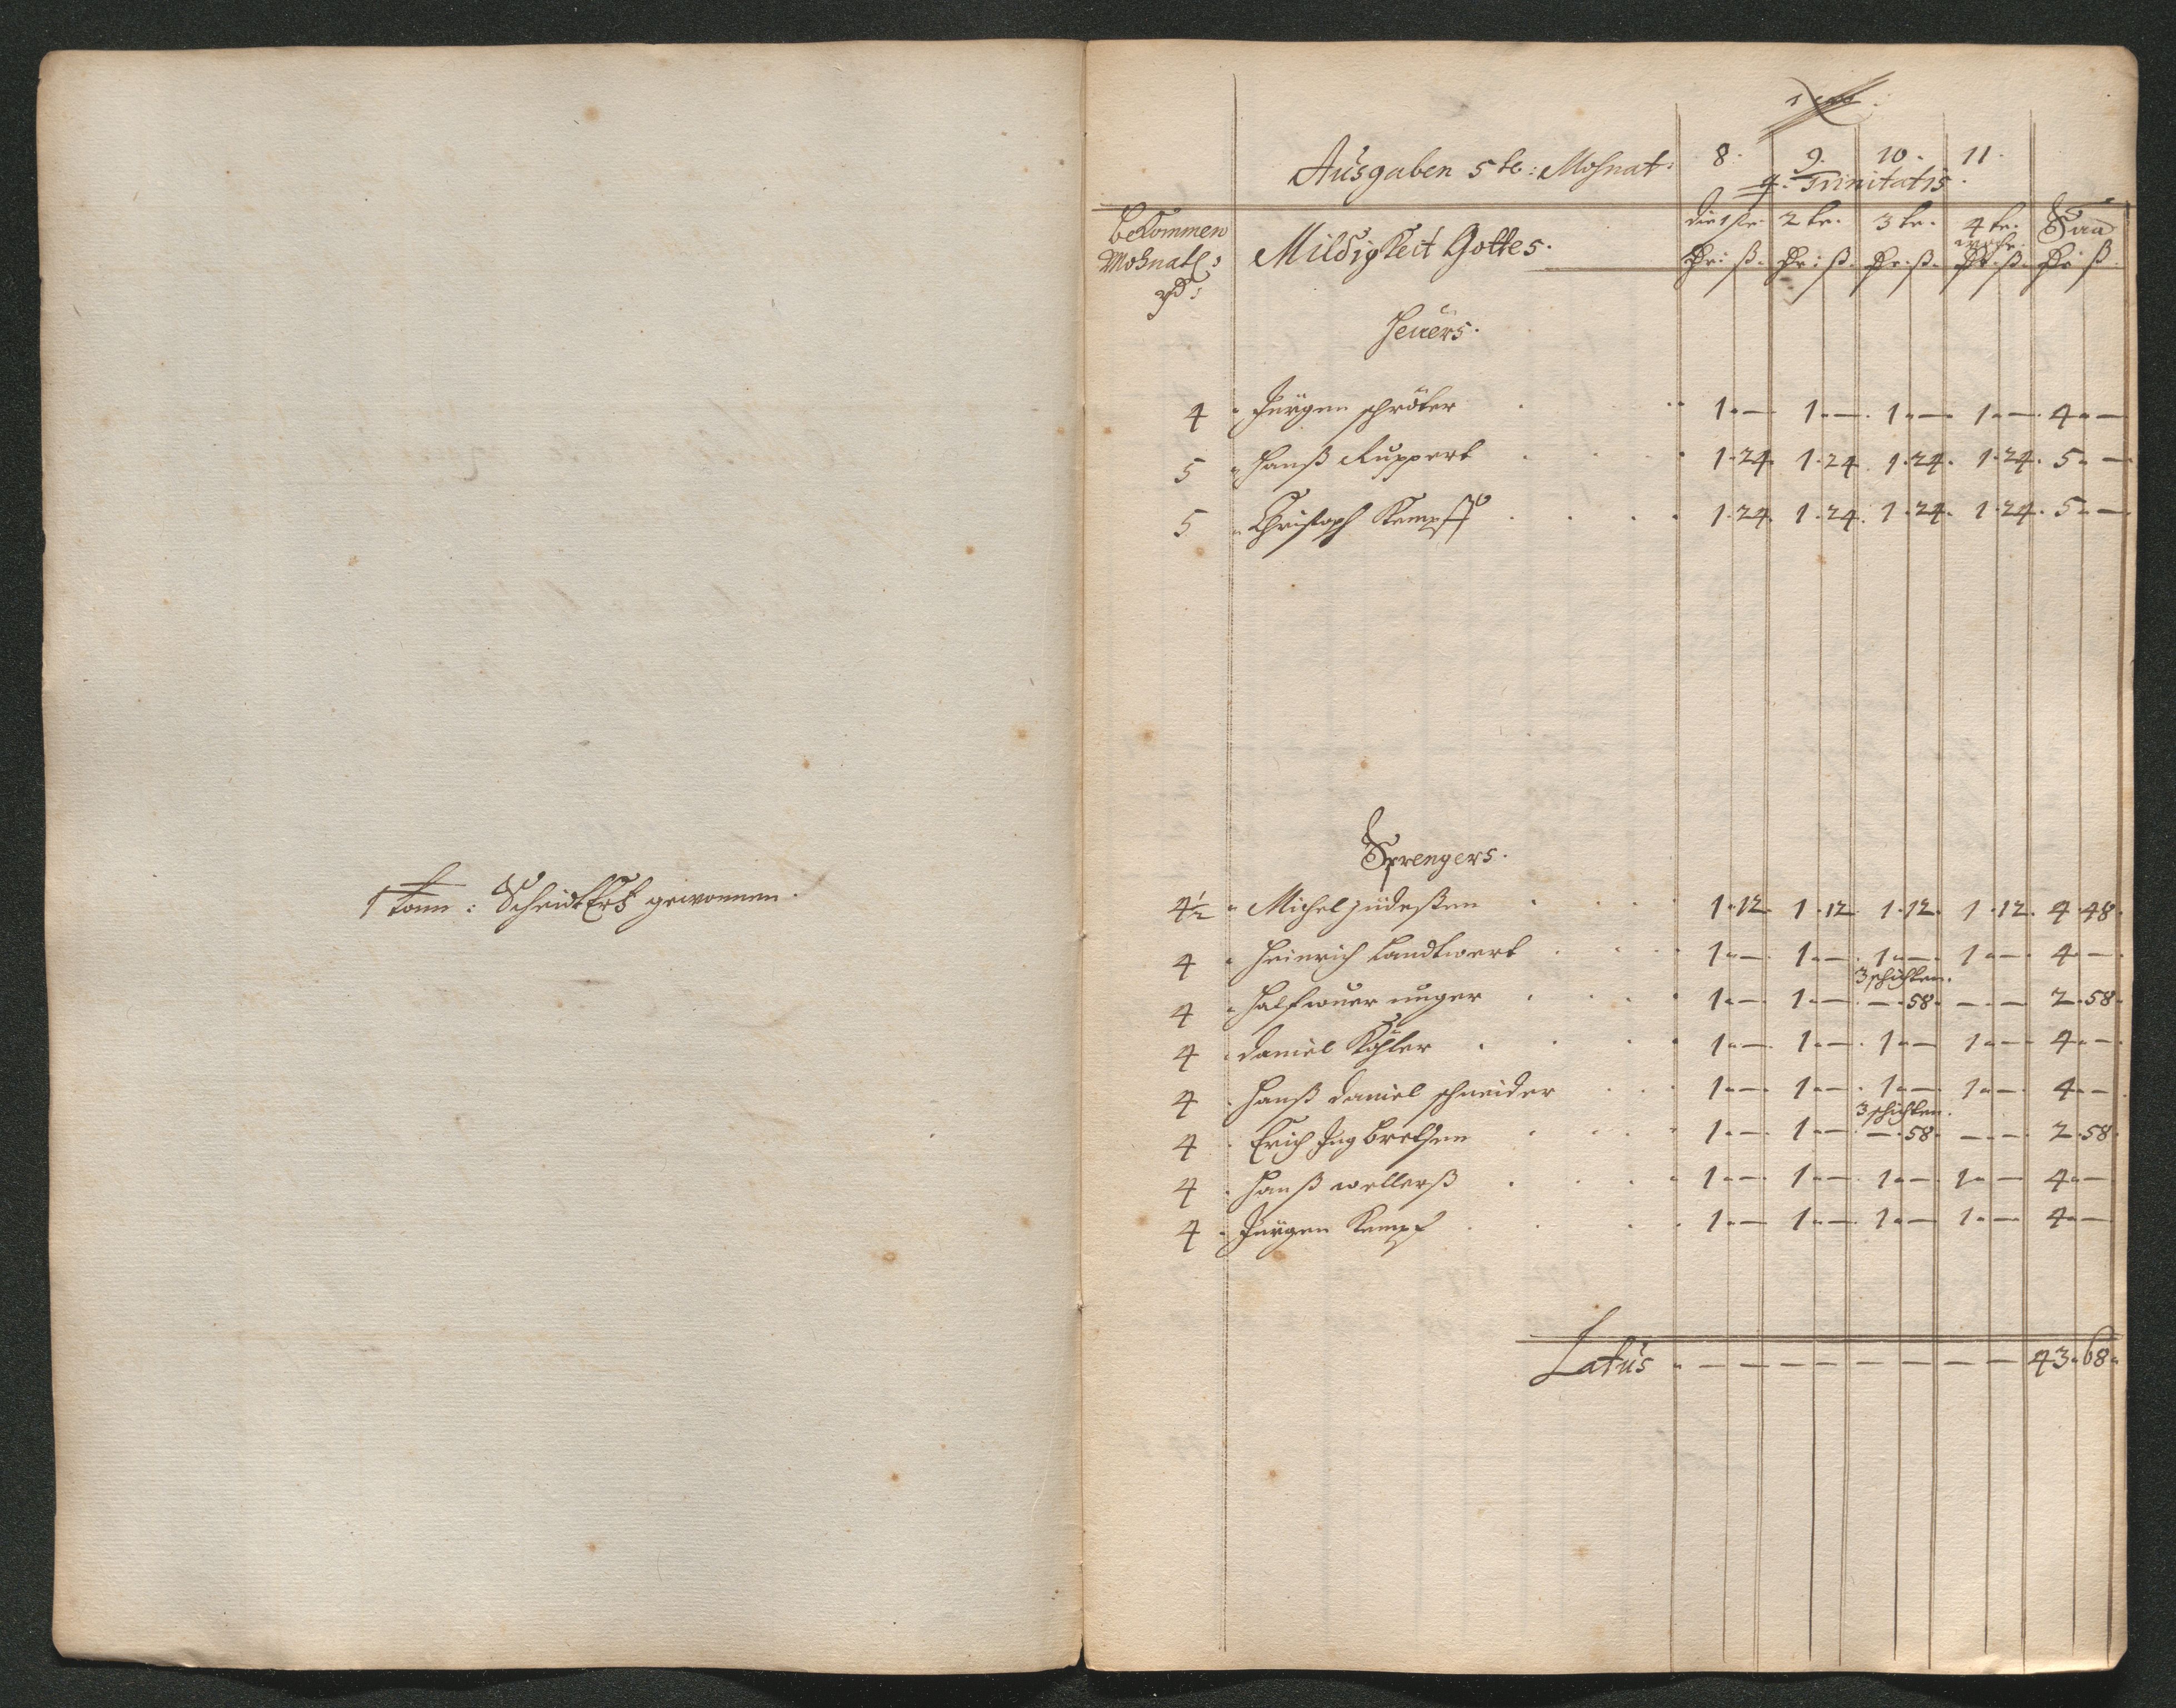 1 tonn: Scheidt Ertz gewonnen.
Ausgaben 5te: Mohnat: 8. 9. 10. 11.
q. Trinitatis.
bekommen Mildigkeit Gottes. die 1ste 2te. 3te. 4te.
Mohnatl: woche.
ß. ß. ß. ß. ß.
Heuers.
4 Jürgen schröter 1 — 1 — 1 — 1 — 4 —
5 Hanß Ruppert 1. 24. 1. 24. 1. 24. 1. 24. 5 —
5 Christoph Kempff 1. 24. 1. 24. 1. 24. 1. 24. 5 —
Sprengers.
4½ Michel jüdeßen 1. 12. 1. 12. 1. 12. 1. 12. 4. 48.
4 Heinrich Landtwert 1 — 1 — 1 — 1 — 4 —
3 schichten.
4 Halfwuer unger 1 — 1 — — 58. — — 2. 58.
4 Daniel Köhler 1 — 1 — 1 — 1 — 4 —
4 Hanß Daniel schneider 1 — 1 — 1 — 1 — 4 —
3 schichten.
4 Erich Ingbretsen 1 — 1 — — 58. — — 2. 58.
4 Hanß wellerß 1 — 1 — 1 — 1 — 4 —
4 Jürgen Kempf 1 — 1 — 1 — 1 — 4 —
Latus — — — — — — — — 43. 68.